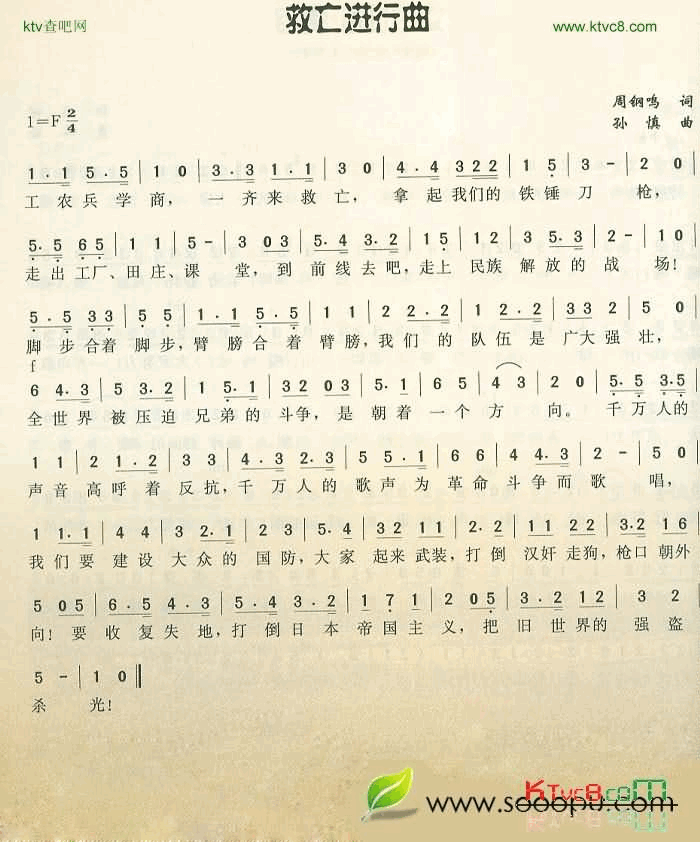 ktv查吧网
救亡进行曲
www.ktvc8.com
1=F 2/4
周钢鸣 词
孙慎 曲
1·1 5·5 | 1 0 | 3·3 1·1 | 3 0 | 4·4 322 | 1 5 | 3 - | 2 0 |
工农兵学商，一齐来救亡，拿起我们的铁锤刀枪，
5·5 65 | 1 1 | 5 - | 3 03 | 5·4 3·2 | 1 5 | 12 3 | 3 5·5 | 2 - | 1 0 |
走出工厂、田庄、课堂，到前线去吧，走上民族解放的战场！
5·5 33 | 5 5 | 1·1 5·5 | 1 1 | 2·2 2 | 1 2·2 | 33 2 | 5 0 |
脚步合着脚步，臂膀合着臂膀，我们的队伍是广大强壮，
f
6 4·3 | 5 3·2 | 1 5·1 | 32 03 | 5·1 | 6 5 | 4 3 | 2 0 | 5·5 3·5 |
全世界被压迫兄弟的斗争，是朝着一个方向。千万人的
1 1 | 2 1·2 | 3 3 | 4·3 2·3 | 5 5·1 | 6 6 | 4 4·3 | 2 - | 5 0 |
声音高呼着反抗，千万人的歌声为革命斗争而歌唱，
1 1·1 | 4 4 | 3 2·1 | 2 3 | 5·4 | 32 11 | 5 5 | 22 11 | 3·2 16 |
我们要建设大众的国防，大家起来武装，打倒汉奸走狗，枪口朝外
5 05 | 6·5 4·3 | 2 05 | 4·3 3·2 | 1 71 | 2 05 | 3·2 12 | 3 2 |
向！要收复失地，打倒日本帝国主义，把旧世界的强盗
5 - | 1 0 ‖
杀光！
KTvc8.com
www.sooopu.com